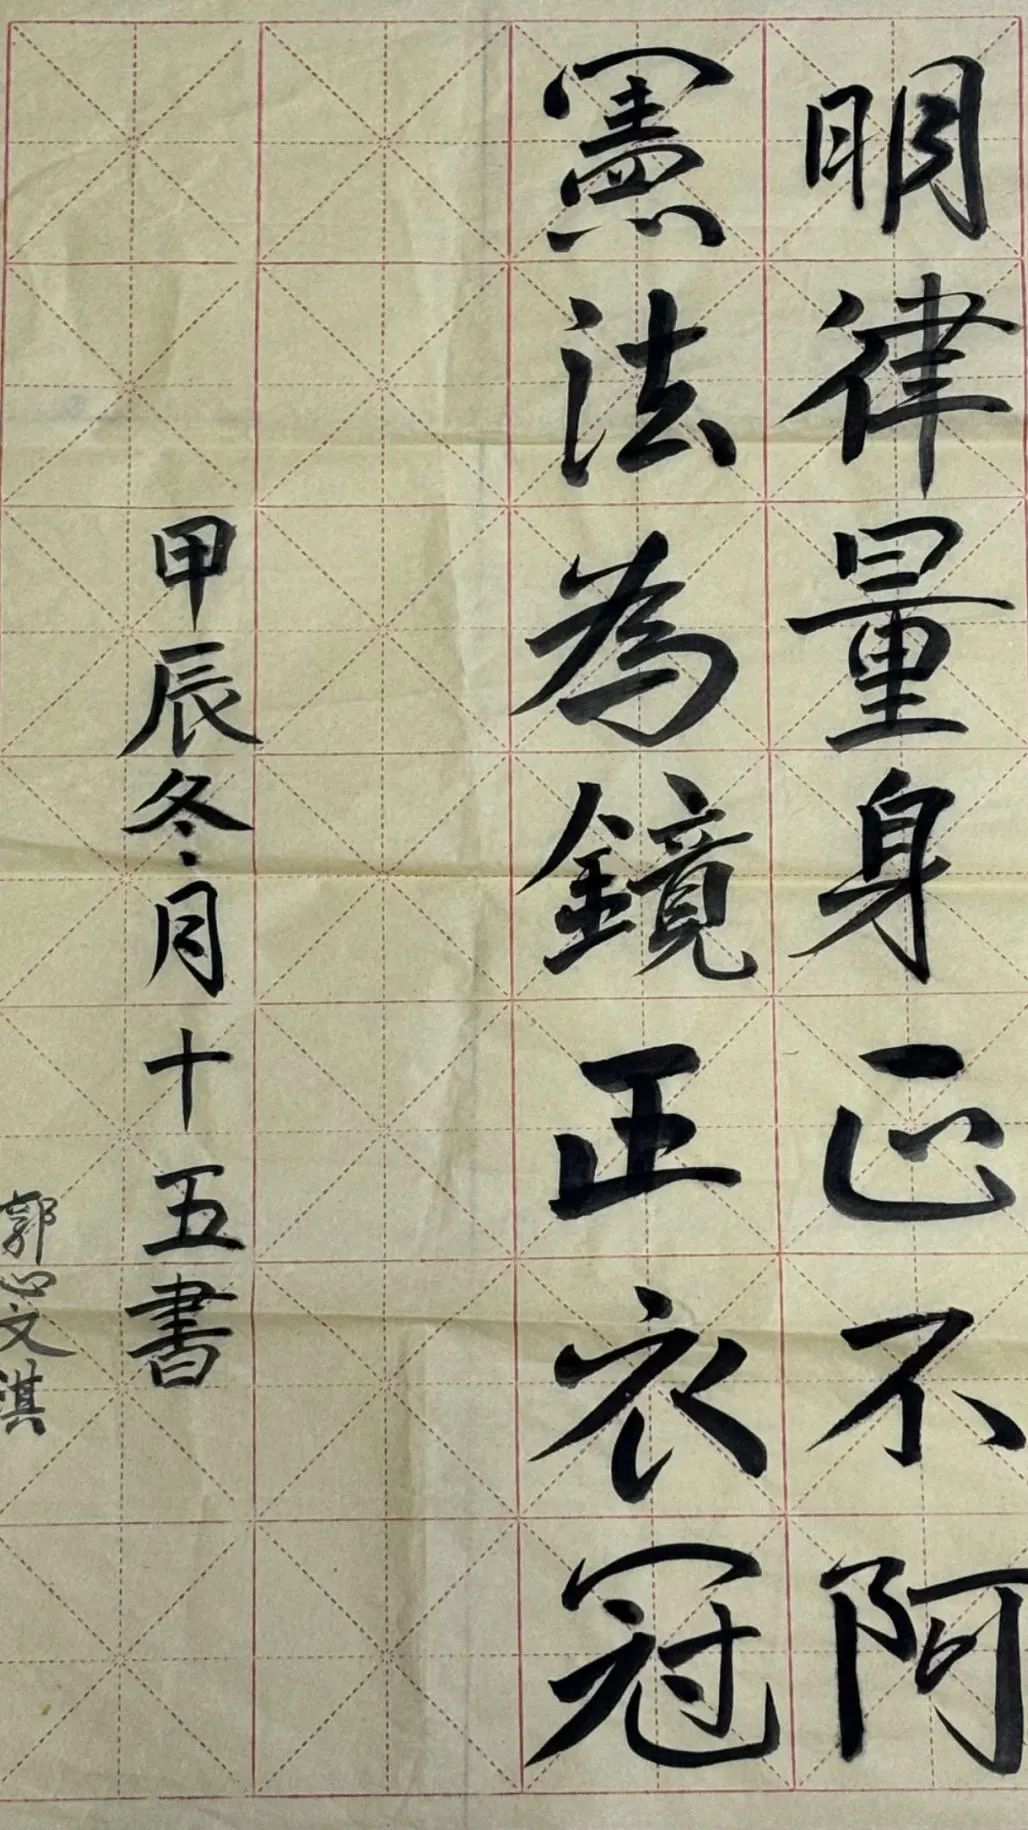 明律量身正不阿
憲法為鏡正衣冠
甲辰冬月十五書
郭心文淇